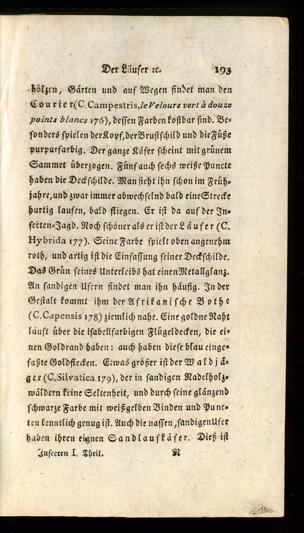 Der Läufer ꝛc. 193
hölzen, Gärten und auf Wegen findet man den
Courier (C. Campestris, le Velours vert à douze
points blancs 176), dessen Farben kostbar sind. Be-
sonders spielen der Kopf, der Brustschild und die Füße
purpurfarbig. Der ganze Käfer scheint mit grünem
Sammet überzogen. Fünf auch sechs weiße Puncte
haben die Deckschilde. Man sieht ihn schon im Früh-
jahre, und zwar immer abwechselnd bald eine Strecke
hurtig laufen, bald fliegen. Er ist da auf der In-
secten-Jagd. Noch schöner als er ist der Läufer (C.
Hybrida 177). Seine Farbe spielt oben angenehm
roth, und artig ist die Einfassung seiner Deckschilde.
Das Grün seines Unterleibs hat einen Metallglanz.
An sandigen Ufern findet man ihn häufig. In der
Gestalt kommt ihm der Afrikanische Bothe
(C. Capensis 178) ziemlich nahe. Eine goldne Naht
läuft über die isabellfarbigen Flügeldecken, die ei-
nen Goldrand haben: auch haben diese blau einge-
faßte Goldflecken. Etwas größer ist der Waldjä-
ger (C. Silvatica 179), der in sandigen Nadelholz-
wäldern keine Seltenheit, und durch seine glänzend
schwarze Farbe mit weißgelben Binden und Punc-
ten kenntlich genug ist. Auch die nassen, sandigen Ufer
haben ihren eignen Sandlaufkäfer. Dieß ist
Insecten I. Theil. N